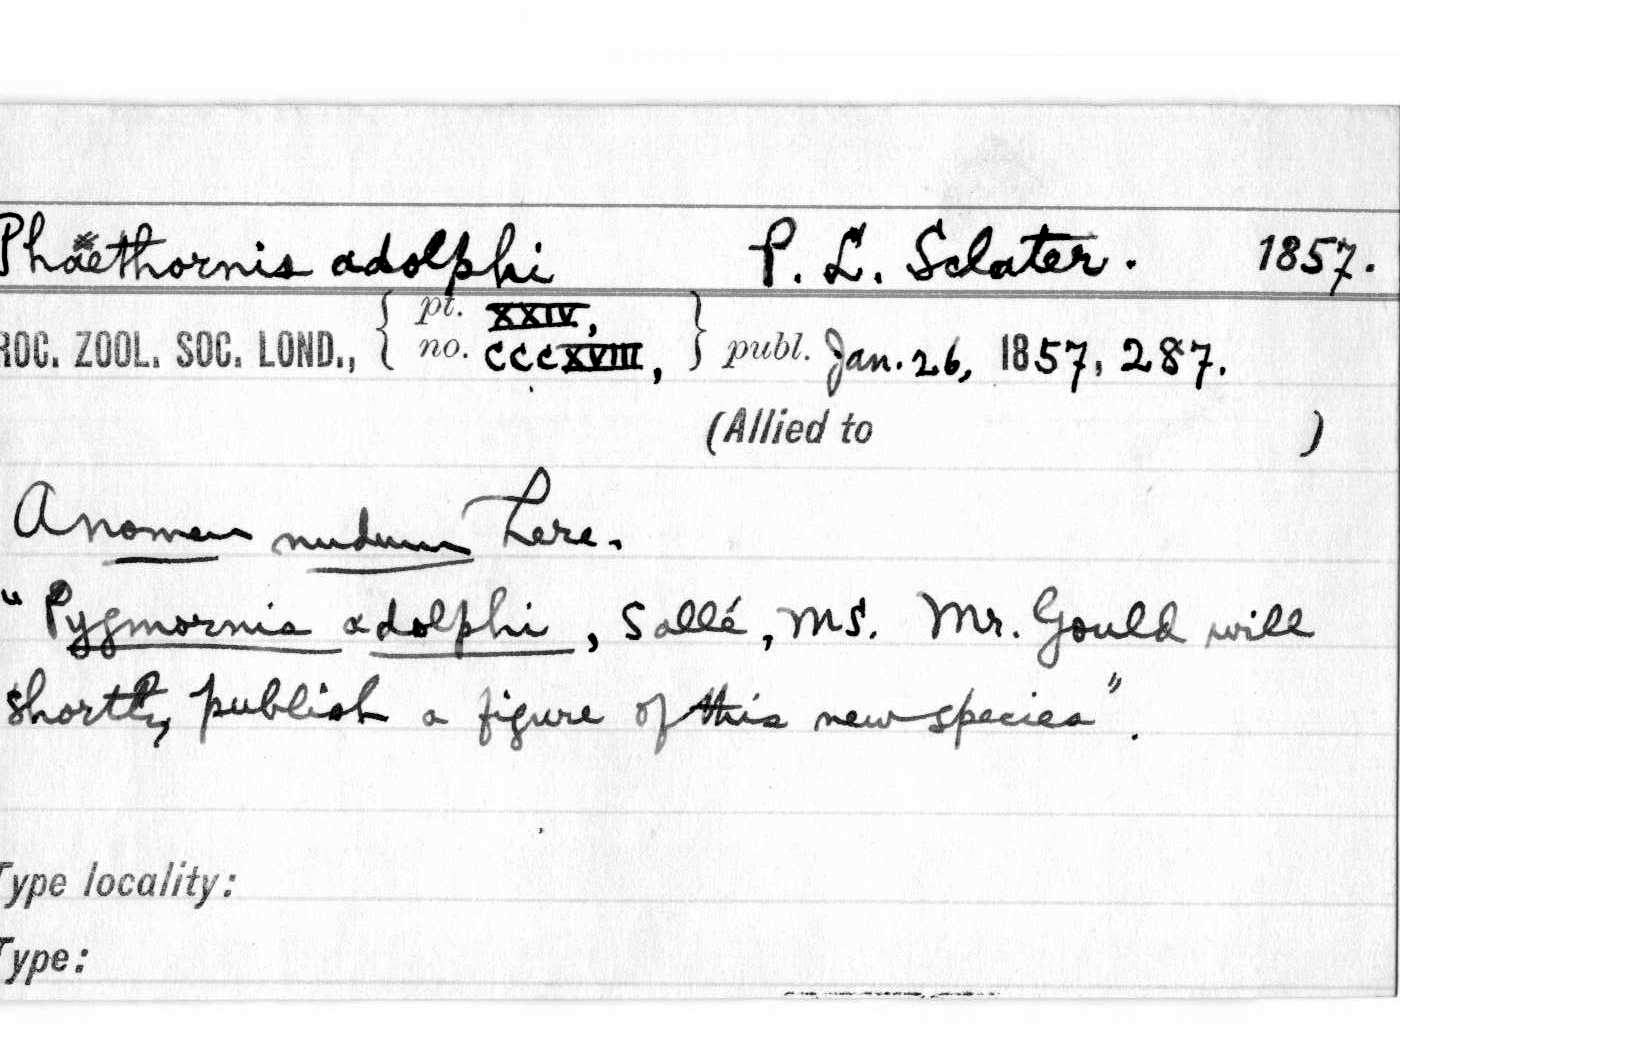 Phaethornis adolphi P. L. Sclater. 1857.
ROC. ZOOL. SOC. LOND., { pt. XXIV, no. CCCXVIII, } publ. Jan. 26, 1857, 287.
(Allied to )
A nomen nudum here.
"Pygmornis adolphi, Sallé, MS. Mr. Gould will
shortly publish a figure of this new species".
Type locality:
Type: